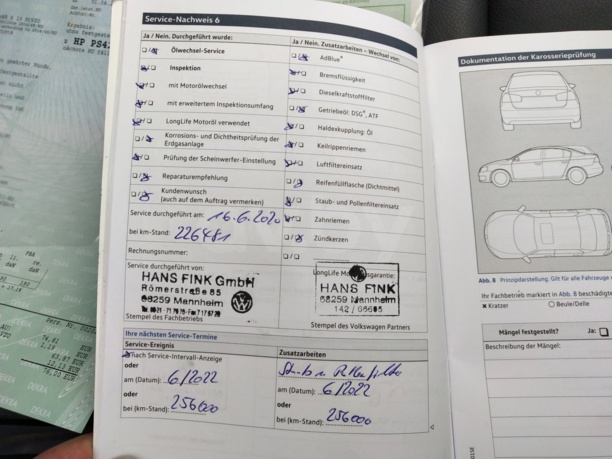 Service-Nachweis 6
Ja / Nein. Durchgeführt wurde:
Ölwechsel-Service
Inspektion
mit Motorölwechsel
mit erweitertem Inspektionsumfang
LongLife Motoröl verwendet
Korrosions- und Dichtheitsprüfung der
Erdgasanlage
Prüfung der Scheinwerfer-Einstellung
Reparaturempfehlung
Kundenwunsch
(auch auf dem Auftrag vermerken)
Service durchgeführt am: 16.6.2020
bei km-Stand: 226481
Rechnungsnummer:
Service durchgeführt von:
HANS FINK GmbH
Römerstraße 85
68259 Mannheim
Stempel des Fachbetriebs
Ja / Nein. Zusatzarbeiten – Wechsel von:
AdBlue®
Bremsflüssigkeit
Dieselkraftstofffilter
Getriebeöl: DSG®, ATF
Haldexkupplung: Öl
Keilrippenriemen
Luftfiltereinsatz
Reifenfüllflasche (Dichtmittel)
Staub- und Pollenfiltereinsatz
Zahnriemen
Zündkerzen
HANS FINK GmbH
68259 Mannheim
142 / 66605
Stempel des Volkswagen Partners
Ihre nächsten Service-Termine
Service-Ereignis
nach Service-Intervall-Anzeige
oder
am (Datum): 6/2022
oder
bei (km-Stand): 256000
Zusatzarbeiten
oder
am (Datum): 6/2022
oder
bei (km-Stand): 256000
Dokumentation der Karosserieprüfung
Abb. 8 Prinzipdarstellung. Gilt für alle Fahrzeuge
Ihr Fachbetrieb markiert in Abb. 8
Kratzer
Beule/Delle
Mängel festgestellt? Ja:
Beschreibung der Mängel: